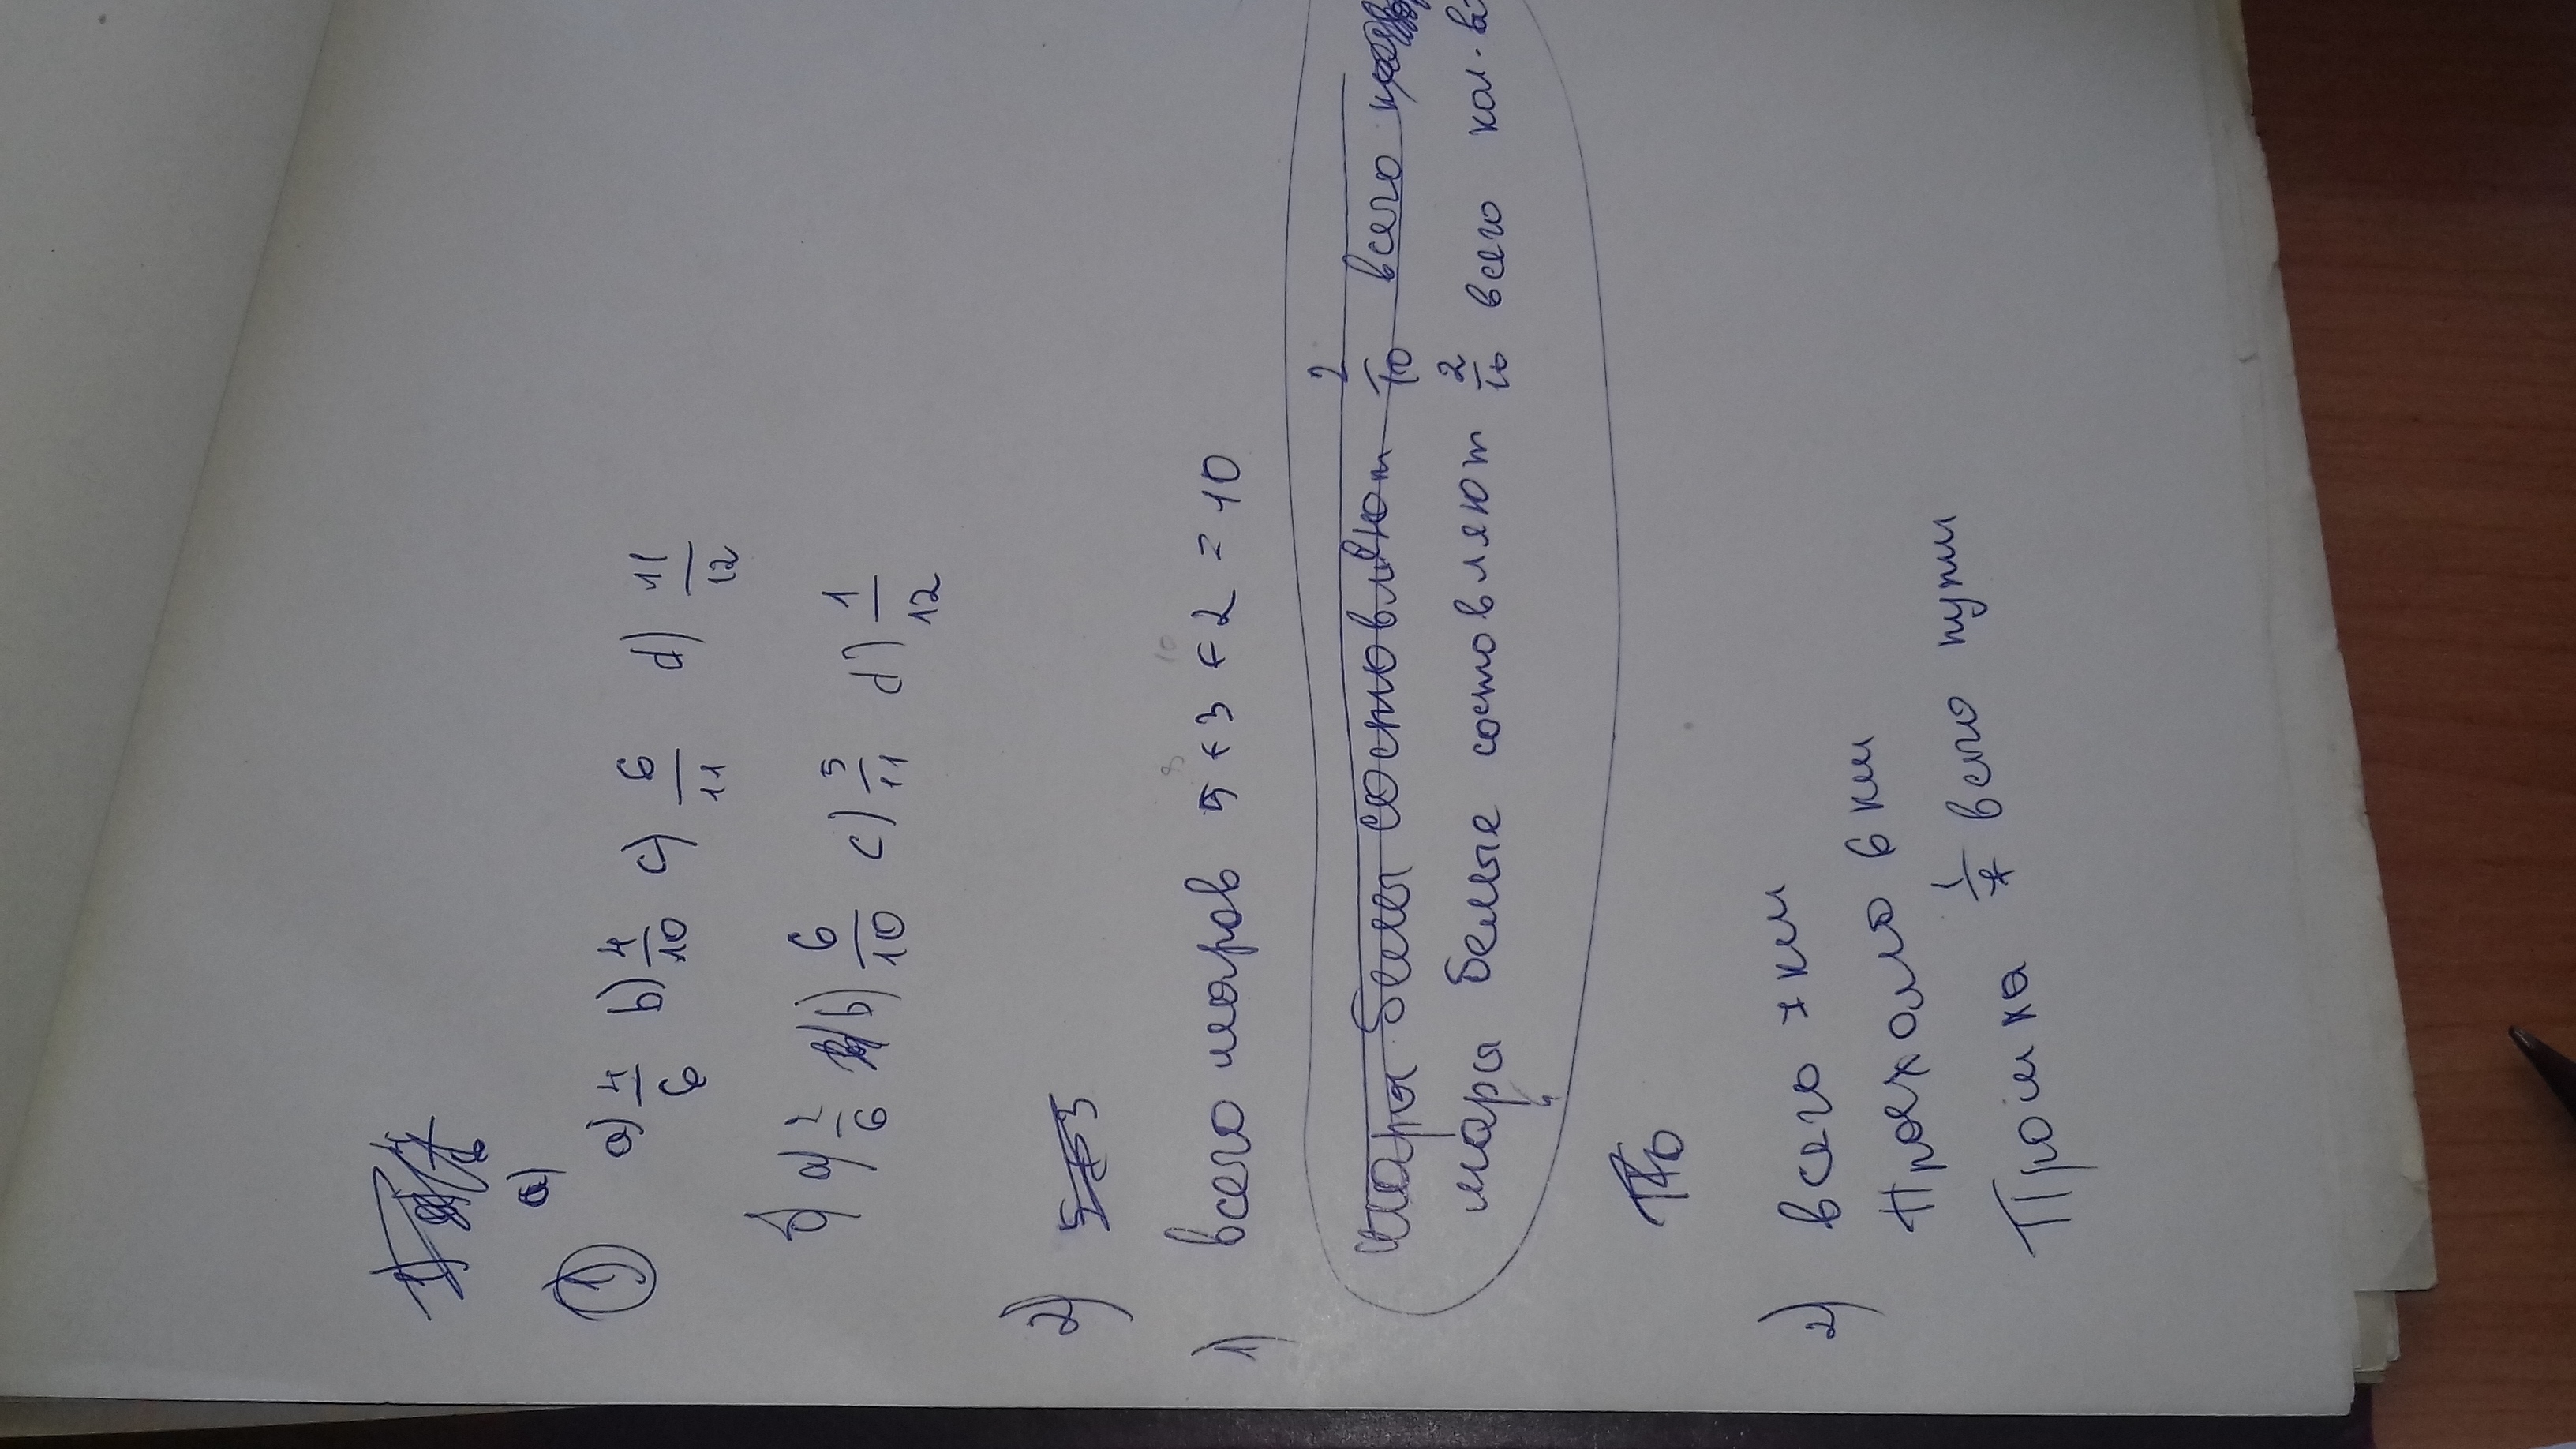 ① а)
а) 4/6 b) 4/10 c) 6/11 d) 11/12
б) а) 2/6 b) 6/10 c) 5/11 d) 1/12
2) 5+3
1) всего шаров 5+3+2=10
шары белы состовляют 2/10 всего
шары белые состовляют 2/10 всего кол-ва
2) всего * км
Проехало 6 км
всего пути